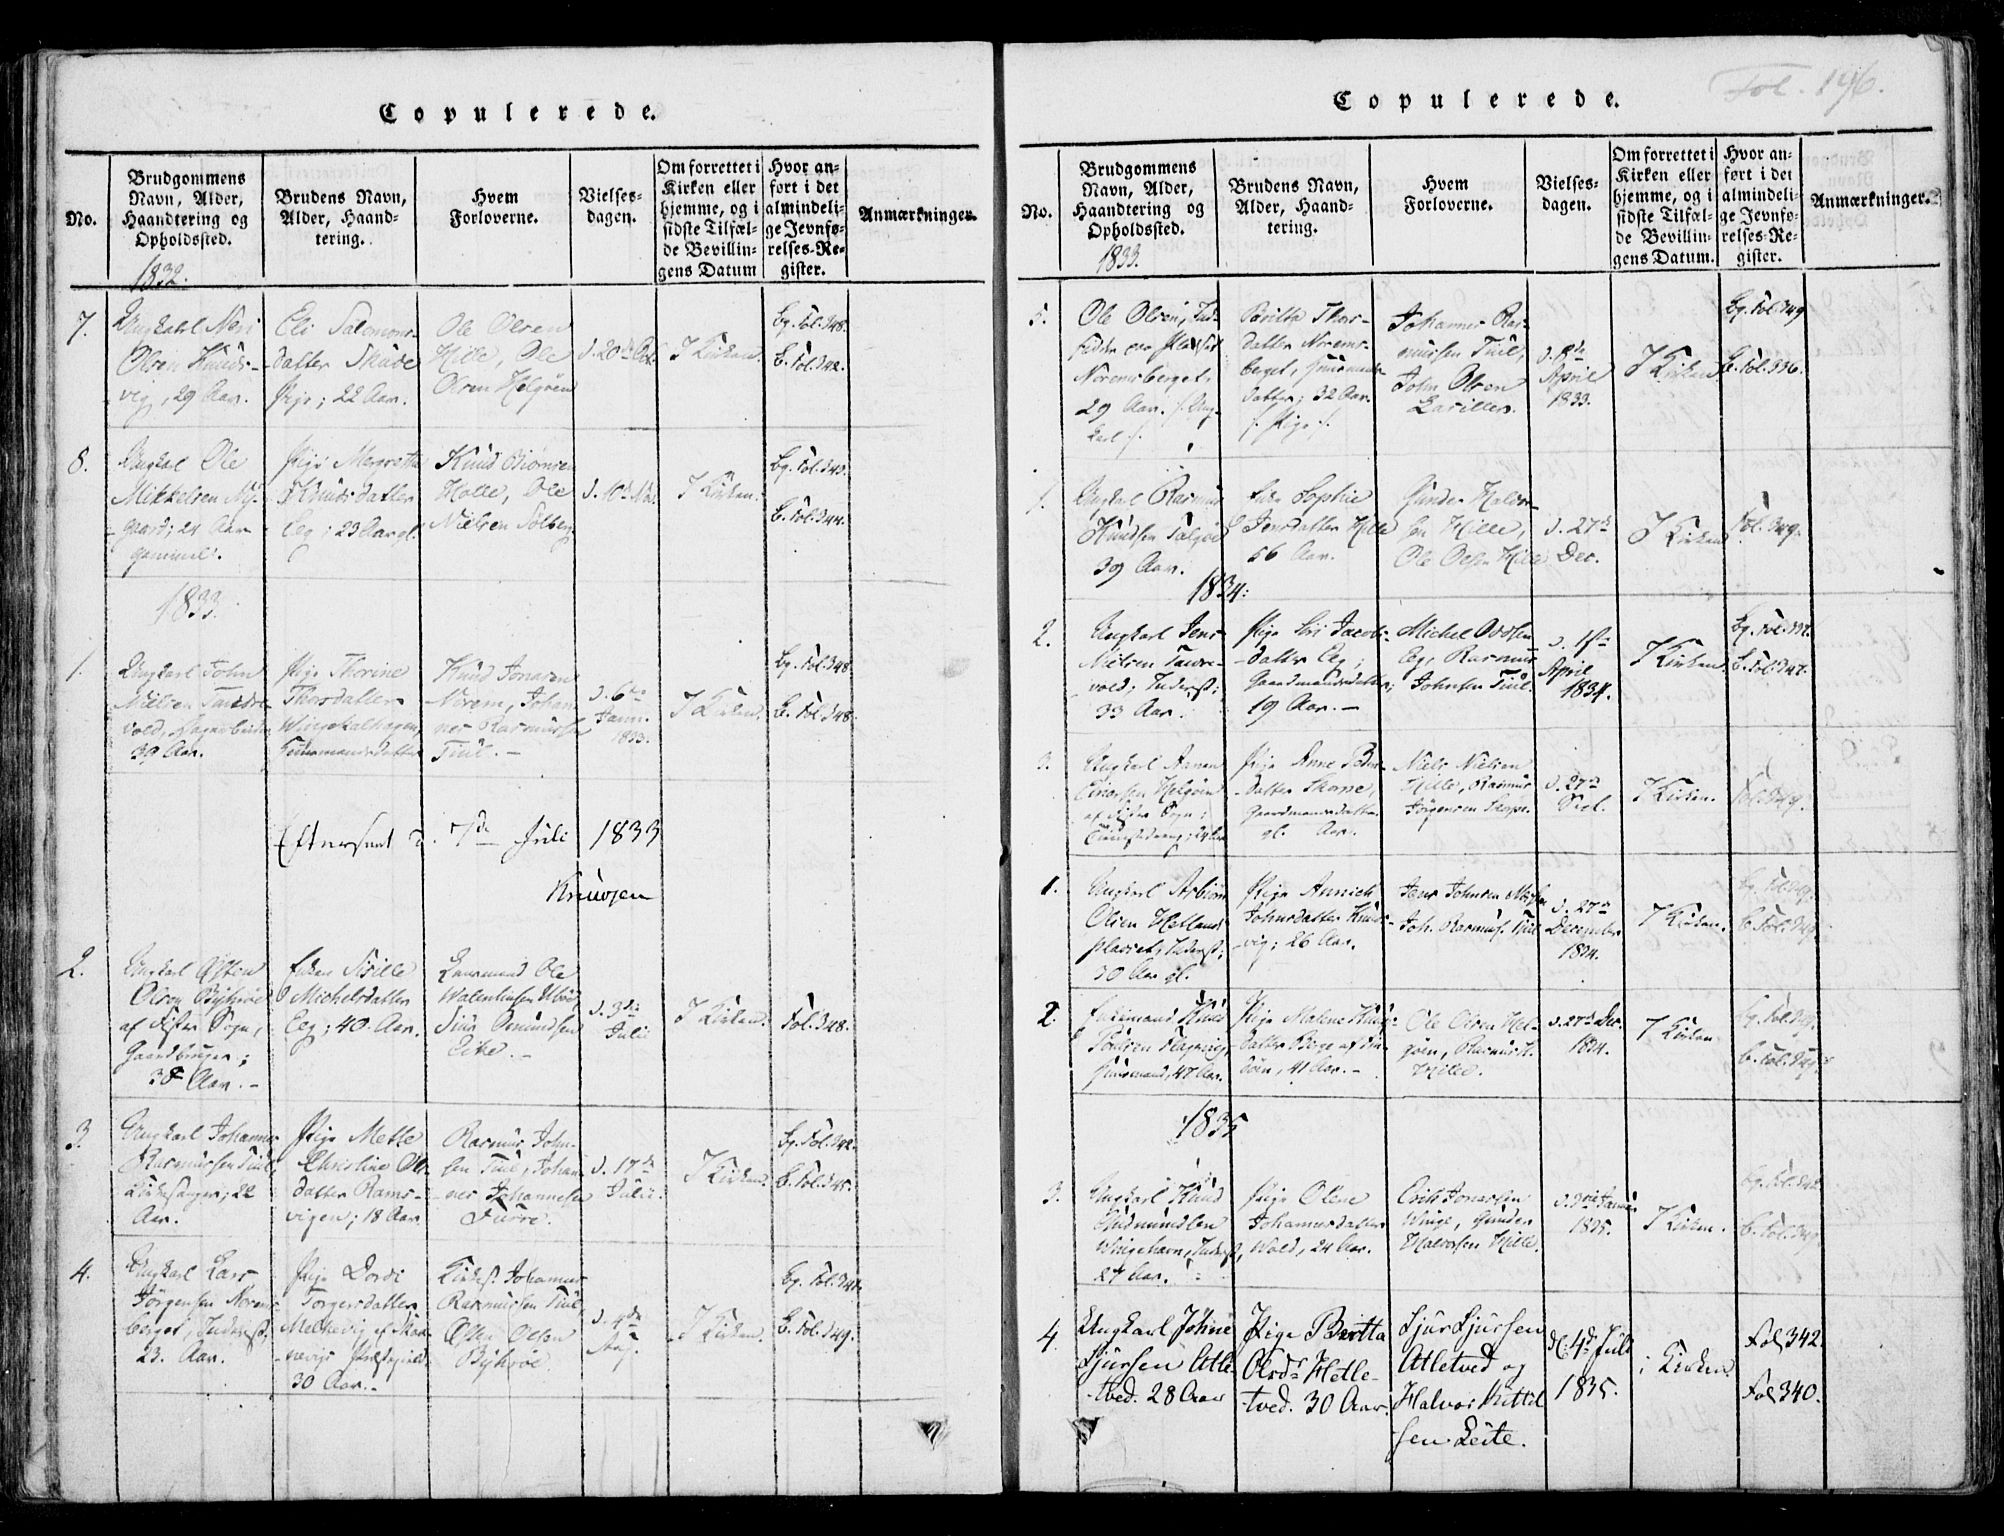 Fol. 146.
Copulerede.
No.
Brudgommens
Navn, Alder,
Haandtering og
Opholdssted.
Brudens Navn,
Alder, Haand-
tering.
Hvem
Forloverne.
Vielses-
dagen.
Om forrettet i
Kirken eller
hjemme, og i
sidste Tilfæl-
de Bevillin-
gens Datum
Hvor an-
ført i det
almindeli-
ge Jevnfø-
relses-Re-
gister.
Anmærkninger.
1832.
7.
Ungkarl
Olsen Knuds-
vig, 29 Aar.
Eli Salomons-
datter
Pige; 22 Aar.
Ole Olsen
Hille, Ole
Olsen Helgøen
d. 20de Oct.
I Kirken.
Bg. Fol. 348.
B. Fol. 342.
8.
Ungkarl Ole
Mikkelsen Ny-
gaard; 24 Aar
gammel.
Pige Margretha
Knudsdatter
Eeg; 23 Aar gl.
Knud Biørnsen
Holle, Ole
Nielsen Solberg
d. 10de Nov.
I Kirken.
Bg. Fol. 343.
B. Fol. 344.
1833.
1.
Ungkarl John
Nielsen
vold,
30 Aar.
Pige Thorine
Thorsdatter
Huusmandsdatter
Knud Jonasen
Norem, Johan-
nes Rasmussen
Tiul. -
d. 6te
Janu.
1833.
I Kirken.
Bg. Fol. 348
B. Fol. 348.
Efterseet d. 7de Juli 1833
Knudsen
2.
Ungkarl Østen
Olsen Byhrøe
af Fister Sogn,
Gaardbruger;
38 Aar. -
Enken Sisille
Michelsdatter
Eeg; 40 Aar.
Lensmand Ole
Walentinsen
Siur Osmundsen
Eike. -
d. 3die
Julii
I Kirken.
Fol. 348.
3.
Ungkarl Johannes
Rasmussen Tiul,
Kirkesanger; 22
Aar.
Pige Mette
Christine Ols-
datter Rams-
vigen; 18 Aar.
Rasmus John-
sen Tiul, Johan-
nes Johannesen
Furre.
d. 17de
Julii.
I Kirken.
Bg. Fol. 342.
B. Fol. 345.
4.
Ungkarl Lars
Jørgensen Norems-
berget, Inderst,
23. Aar.
Pige Dordi
Torgersdatter
Melkevig af Skaa-
nevigs Præstegield
30 Aar. -
Kirkes. Johannes
Rasmussen Tiul,
Østen Olsen
Byhrøe
d. 4de
Aug.
I Kirken.
Bg. Fol. 342.
B. Fol. 349.
Copulerede.
No.
Brudgommens
Navn, Alder,
Haandtering og
Opholdssted.
Brudens Navn,
Alder, Haand-
tering.
Hvem
Forloverne.
Vielses-
dagen.
Om forrettet i
Kirken eller
hjemme, og i
sidste Tilfæl-
de Bevillin-
gens Datum.
Hvor an-
ført i det
almindeli-
ge Jevnfø-
relses-Re-
gister.
Anmærkninger.
1833.
5.
Ole Olsen,
Noremsberget,
29 Aar. /: Ung-
karl :/.
Britha Thors-
datter Norems-
berget, Huusmands-
datter; 32 Aar.
/: Pige :/.
Johannes Ras-
mussen Tiul,
John Olsen
April
1833.
I Kirken
Bg. Fol. 349
B. Fol. 336.
1.
Ungkarl Rasmus
Knudsen Talgøe
39 Aar.
Enke Sophie
Jensdatter Hille
56 Aar.
Gunder Halvor-
sen Hille,
Ole Olsen Hille
d. 27de
Dec.
I Kirken
Fol. 349.
1834:
2.
Ungkarl Jens
Nielsen
vold, Inderst;
33 Aar.
Pige Siri Jacobs-
datter Eeg;
Gaardmandsdatter;
19 Aar. -
Michel
Eeg, Rasmus
Johnsen Tiul.
d. 1ste
April
1834.
I Kirken.
Bg. Fol. 337.
B. Fol. 347.
3.
Ungkarl
Helgøen
af Fister Sogn;
Pige Anne Peders-
datter
Gaardmandsdatter
gl. Aar.
Niels Nielsen
Hille, Rasmus
Jørgensen
d. 27de
I Kirken.
Fol. 349.
1.
Ungkarl Asbiørn
Olsen Hetlands
pladset, Inderst;
30 Aar gl.
Pige Annich
Johnsdatter Knuds-
vig; 26 Aar.
Jens Johnsen
Joh. Rasmus. Tiul
d. 27de
December
1834.
I Kirken.
Bg. Fol. 349.
B. Fol. 349.
2.
Enkemand Knud
Huusmand, 47 Aar.
Pige Malene Knuds-
datter
41 Aar. -
Ole Olsen Hel-
gøen, Rasmus K.
Hille.
d. 27de Dec.
1834.
I Kirken
Bg. Fol. 349.
B. Fol. 349.
1835
3.
Ungkarl Knud
Gudmundsen
Wingehavn, Inderst,
27 Aar.
Pige Olene
Johannesdatter
Wold, 24 Aar.
Erik Jonassen
Winge, Gunder
Halvorsen Hille.
d. 3die Januar
1835.
I Kirken.
Bg. Fol. 342.
B. Fol. 349.
4
Ungkarl Johne
Sjursen Atle-
-tved. 28 Aar
Pige Britta
Olsdr Hetle-
-tved. 30 Aar.
Sjur Sjursen
Atletved og
Halvor Kittil
sen Leite.
d. 4de Juli
1835.
i Kirken
Fol 342.
Fol 340.